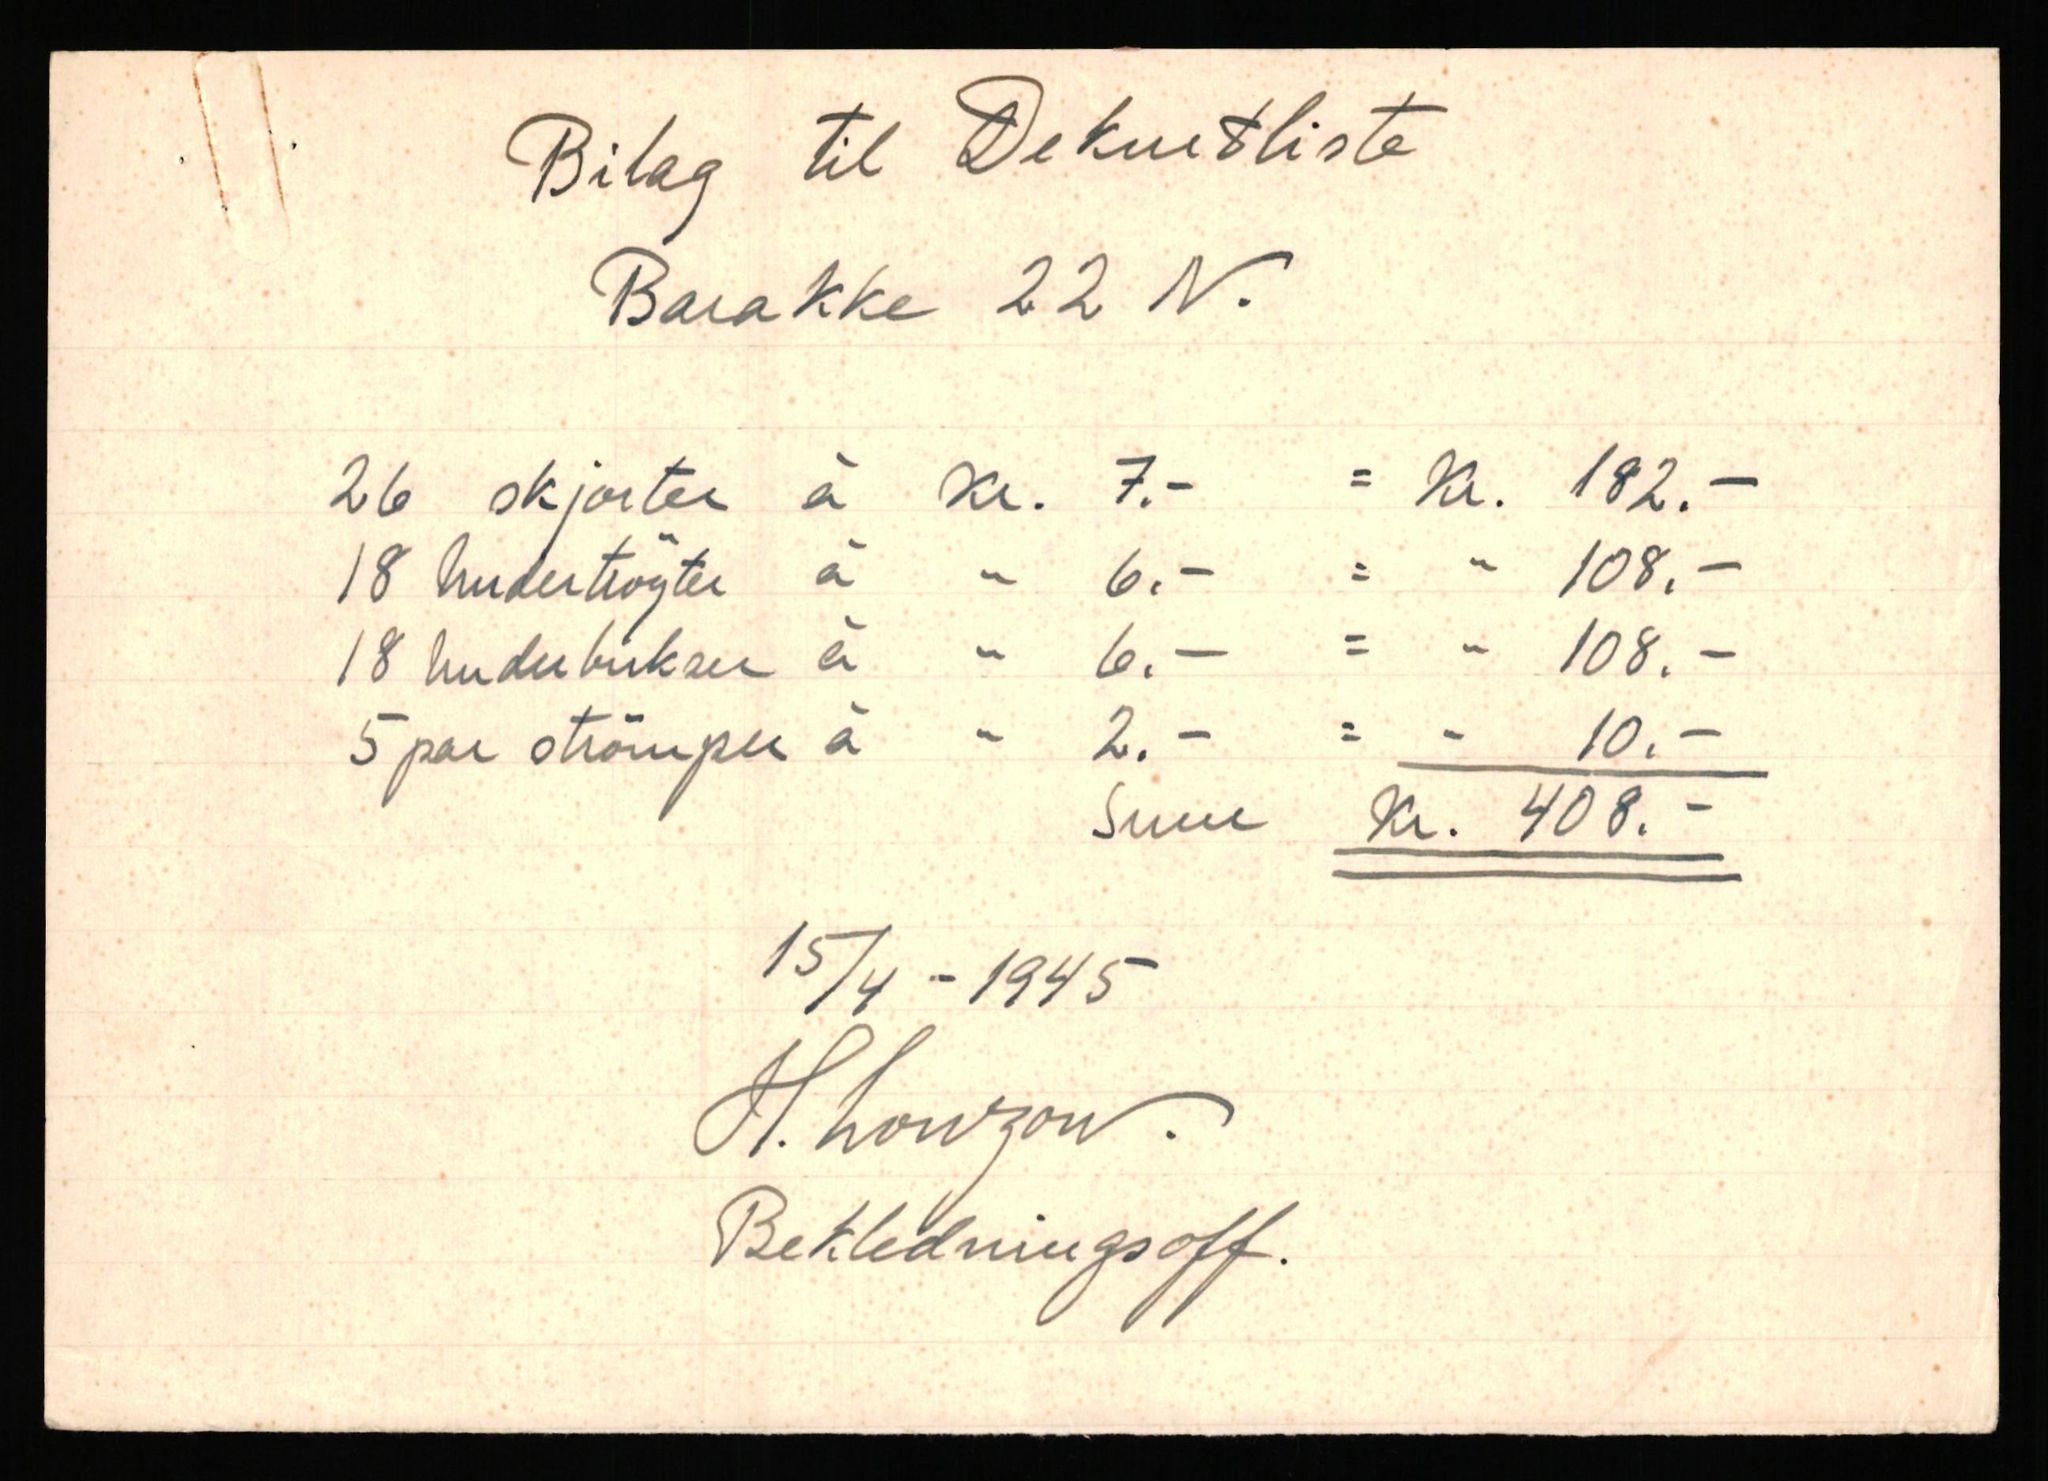 Bilag til Dekurtliste
Barakke 22 N.
26 skjorter à Kr. 7.- = Kr. 182.-
18 undertröyer à " 6.- = " 108.-
18 underbukser à " 6.- = " 108.-
5 par strömper à " 2.- = " 10.-
Sum Kr. 408.-
15/4 - 1945
H. Lowzow.
Bekledningsoff.